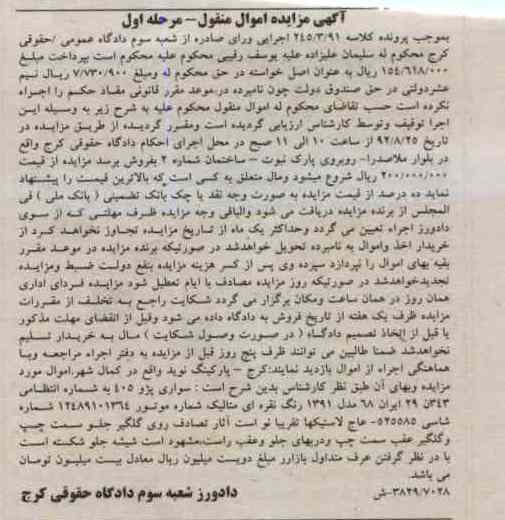 آگهی مزایده اموال منقول – مرحله اول
بموجب پرونده کلاسه ۲۴۵/۳/۹۱ اجرایی ورای صادره از شعبه سوم دادگاه عمومی /حقوقی
کرج محکوم له سلیمان علیزاده علیه یوسف رقیبی محکوم علیه محکوم است بپرداخت مبلغ
۱۵۴/۶۱۸/۰۰۰ ریال به عنوان اصل خواسته در حق محکوم له ومبلغ ۷/۷۳۰/۹۰۰ ریال نیم
عشردولتی در حق صندوق دولت چون نامبرده در موعد مقرر قانونی مفاد حکسم را اجراء
نکرده است حسب تقاضای محکوم له اموال منقول محکوم علیه به شرح زیر به وسیله این
اجرا توقیف وتوسط کارشناس ارزیابی گردیده است ومقرر گردیده از طریق مزایده در
تاریخ ۹۲/۸/۲۵ از ساعت ۱۰ الی ۱۱ صبح در محل اجرای احکام دادگاه حقوقی کرج واقع
در بلوار ملاصدرا- روبروی پارک نبوت – ساختمان شماره ۲ بفروش برسد مزایده از قیمت
۲۰۰/۰۰۰/۰۰۰ ریال شروع میشود ومال متعلق به کسی است که بالاترین قیمت را پیشنهاد
نماید ده درصد از قیمت مزایده به صورت وجه نقد یا چک بانک تضمینی ( بانک ملی ) فی
المجلس از برنده مزایده دریافت می شود والباقی وجه مزایده ظرف مهلتی که از سوی
دادورز اجراء تعیین می گردد وحداکثر یک ماه از تاریخ مزایده تجاوز نخواهد کرد از
خریدار اخذ واموال به نامبرده تحویل خواهدشد در صورتیکه برنده مزایده در موعد مقرر
بقیه بهای اموال را نپردازد سپرده وی پس از کسر هزینه مزایده بنفع دولت ضبط ومزایده
تجدیدخواهدشد در صورتیکه روز مزایده مصادف با ایام تعطیل شود مزایده فردای اداری
همان روز در همان ساعت ومکان برگزار می گردد شکایت راجع به تخلف از مقررات
مزایده ظرف یک هفته از تاریخ فروش به دادگاه داده می شود وقبل از انقضای مهلت مذکور
یا قبل از اتخاذ تصمیم دادگاه ( در صورت وصول شکایت ) مال به خریدار تسلیم
نخواهدشد ضمنا طالبین می توانند ظرف پنج روز قبل از مزایده به دفتر اجراء مراجعه وبا
هماهنگی اجراء از اموال بازدید نمایند:کرج – پارکینگ نوید واقع در کمال شهر،اموال مورد
مزایده وبهای آن طبق نظر کارشناس بدین شرح است : سواری پژو ۴۰۵ به شماره انتظامی
۳۴۳ن ۲۹ ایران ۶۸ مدل ۱۳۹۱ رنگ نقره ای متالیک شماره موتور ۱۲۴۸۹۱۰۱۳۶۴ شماره
شاسی ۵۲۵۵۸۵- عاج لاستیکها تقریبا نو است آثار تصادف روی گلگیر جلو سمت چپ
وگلگیر عقب سمت چپ ودربهای جلو وعقب راست،مشهود است شیشه جلو شکسته است
با در نظر گرفتن عرف متداول بازارر مبلغ دویست میلیون ریال معادل بیست میلیون تومان
می باشد.
۳۸۲۹/۷۰۲۸-ش
دادورز شعبه سوم دادگاه حقوقی کرج